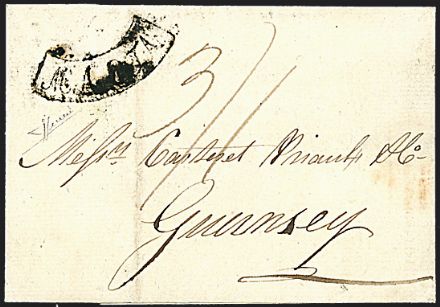 MALTA
3/11
Messrs Carteret Priaulx & Co
Guernsey